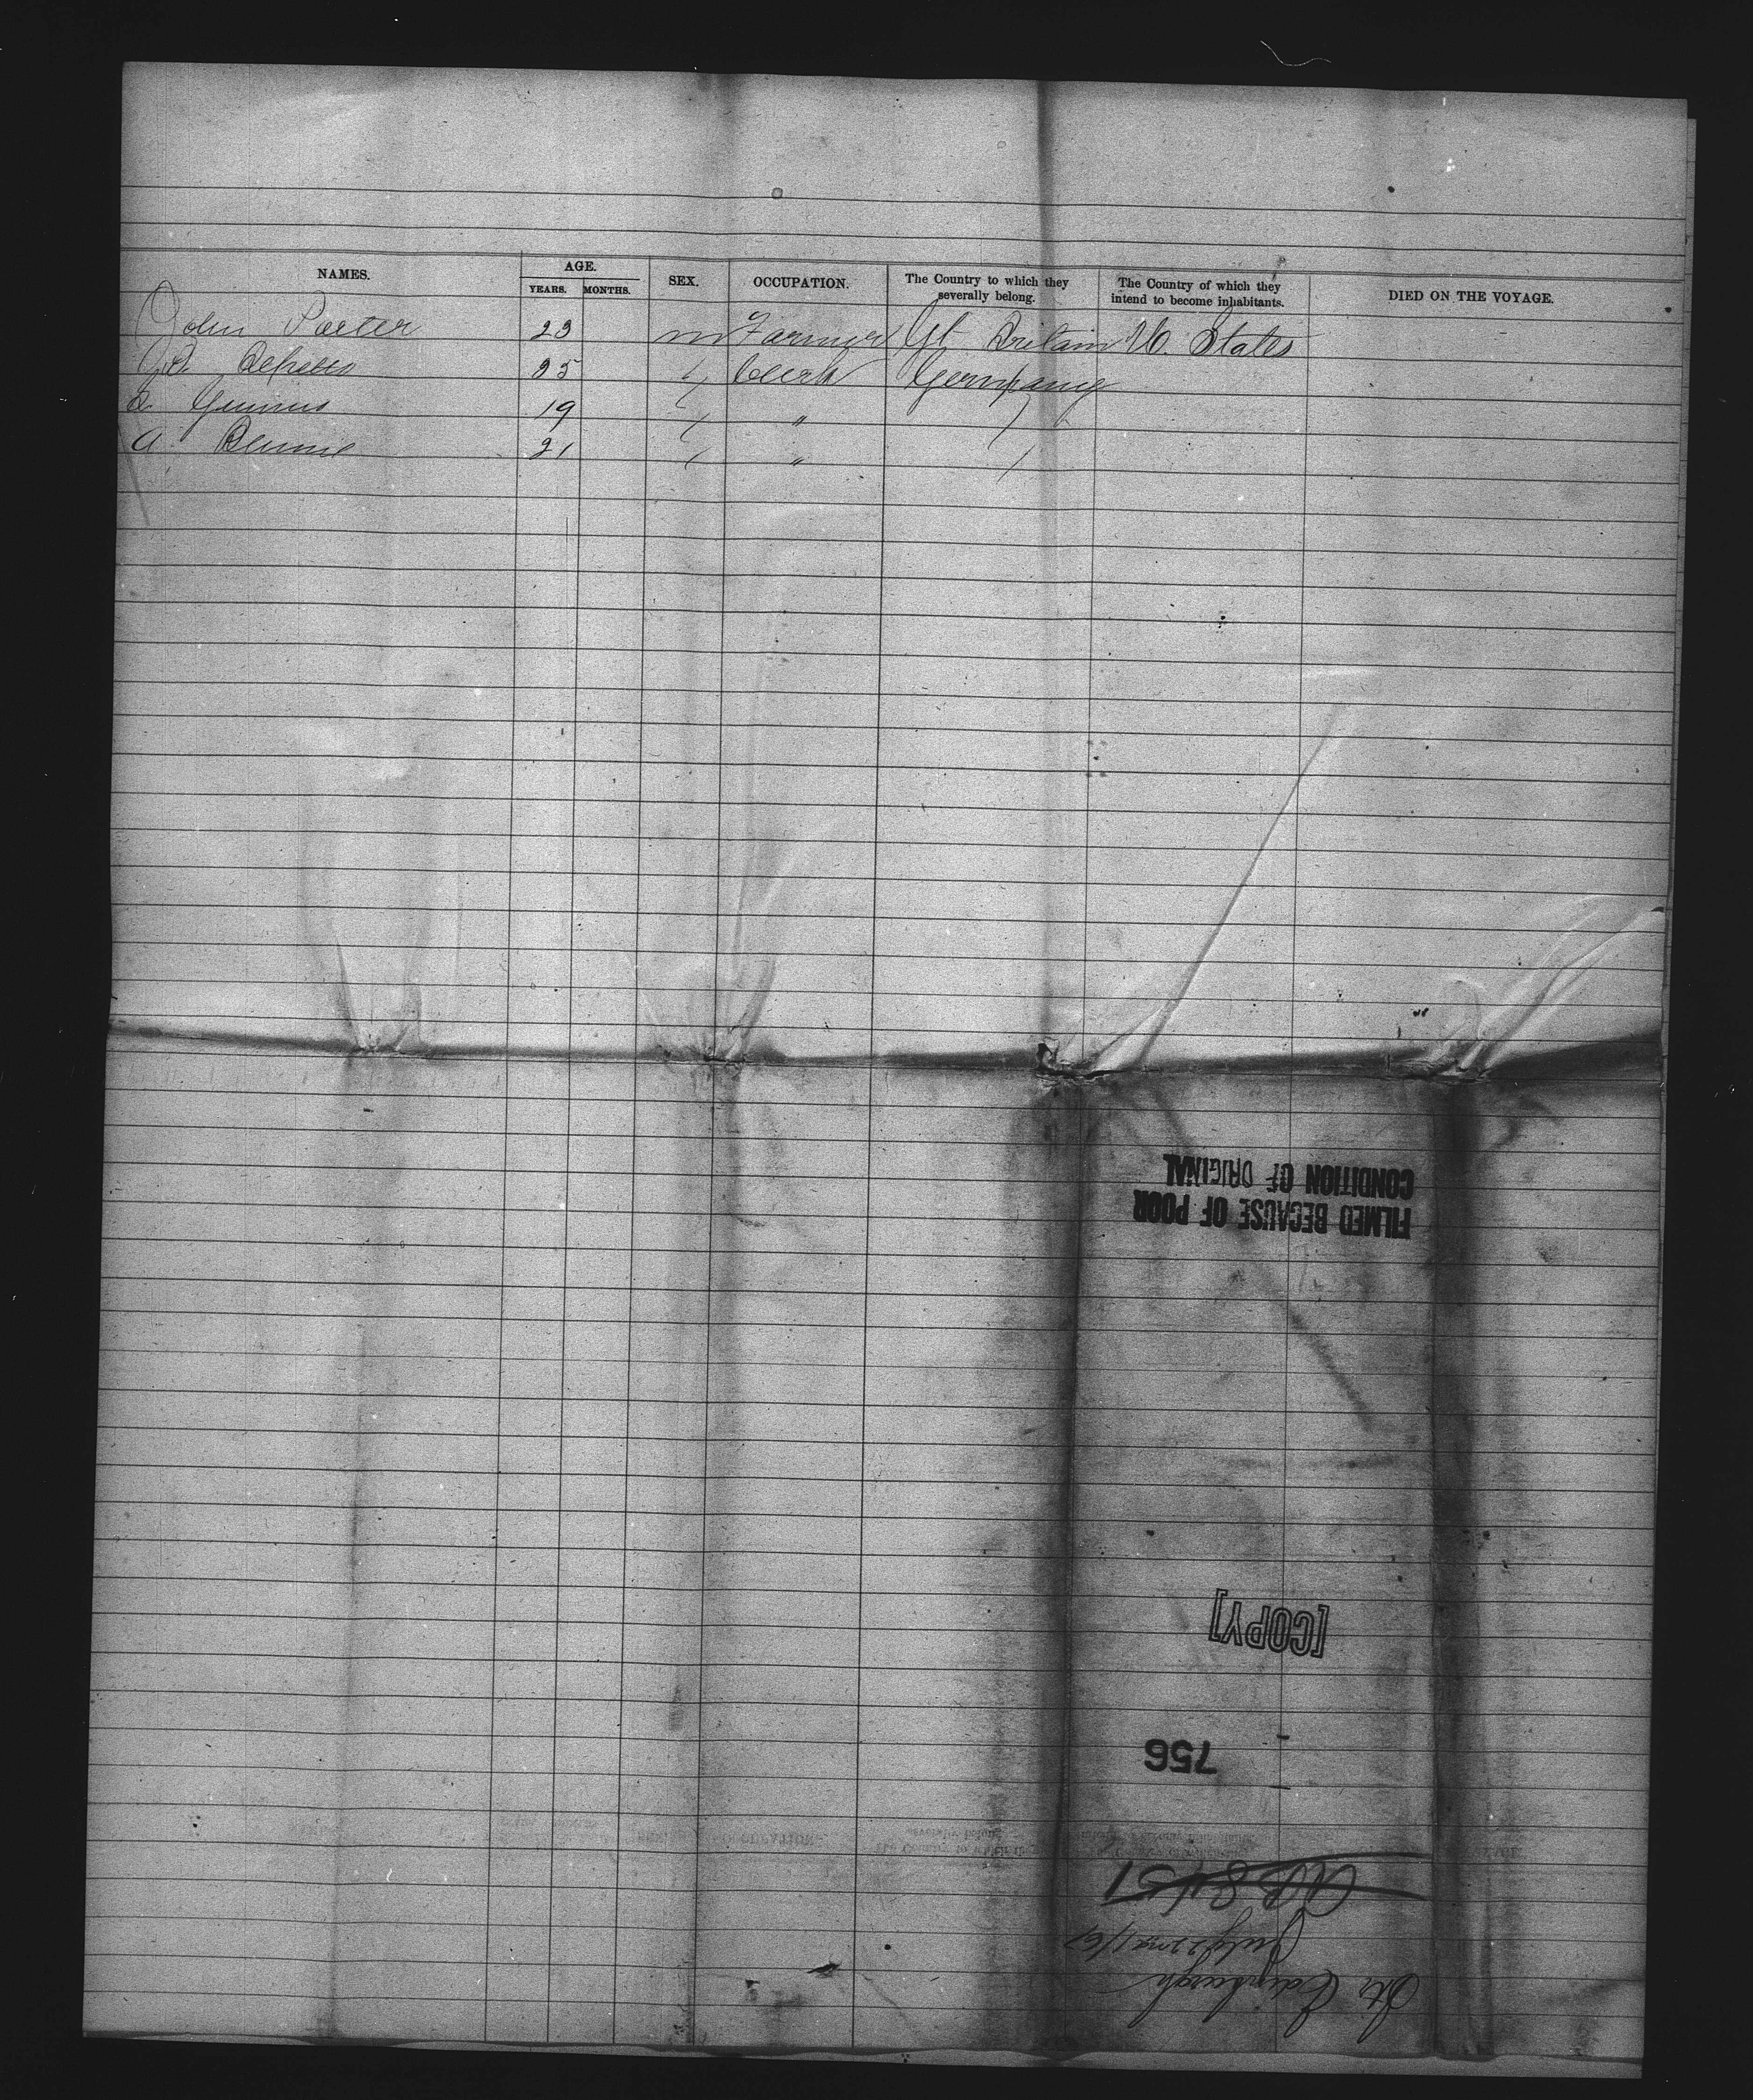 NAMES. AGE. SEX. OCCUPATION. The Country to which they severally belong. The Country of which they intend to become inhabitants. DIED ON THE VOYAGE.
YEARS. MONTHS.
John Porter 23 m Farmer Gt Britain U. States
25 / Clerk Germany
19 / " /
A. 21 / " /
FILMED BECAUSE OF POOR
CONDITION OF ORIGINAL
[COPY]
756
Str Edinburgh
July 22nd /67